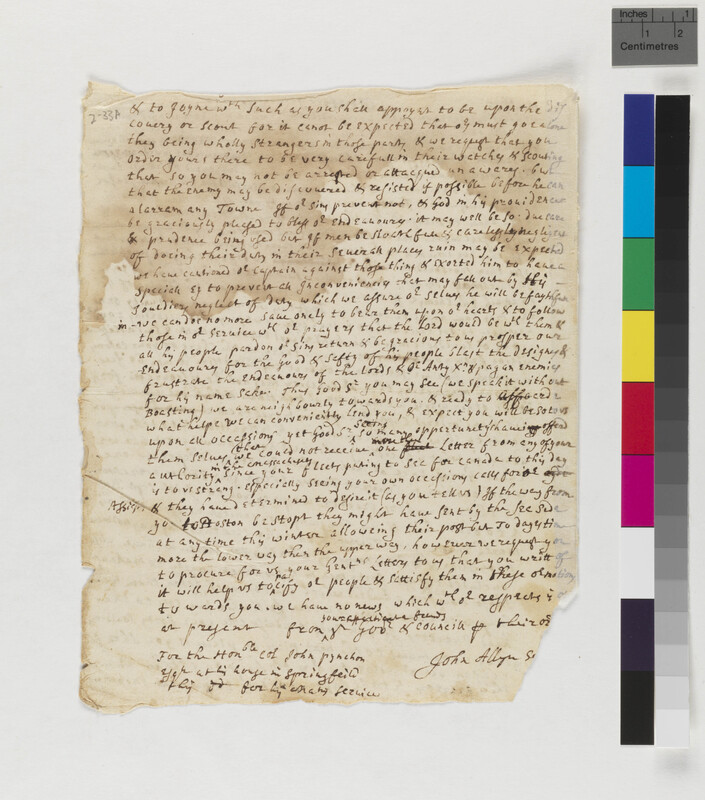 Inches 1
1 2
Centimetres
2-33A
& to Joyne wth Such as you shall appoynt to be upon the
Scovery or Scout for it canot be expected that or must goe alone
they being wholly Strangers in those parts, & we request that you
order yours there to be very carefull in their watches & Scouting
that so you may not be or attaqued unawares. but
that the Enemy may be discovered & resisted if possible before he can
alarram any Towne If or sins prevent not, & God in his providence
be graciously pleased to bless or Endeavours it may well be so. due care
& prudence being used but If men be slouthfull carelessly
of doeing their duty in their severall places ruin may be expected
we have cautioned or Captain against those thing & exorted him to have a
Speciall Ey to prevent all Inconveniencys that may fall out by his
Souldiers neglect of duty which we assure or selves he will be
we can doe no more save onely to beare them upon or hearts & to follow
those in or Service wth or prayers that the Lord would be wth them &
all his people pardon or sins return & be gracious to us prosper our
Endeavours for the Good & safty of his people blast the designes &
frustrate the Endeavours of the Lords & or Anty Xn & pagan enemies
for his name sake. Thus Good Sr you may See (we speak it without
Boasting) we are neighbourly towards you, & ready to afford
what helpe we can conveniently lend you, & expect you will be so to us
upon all occasions yet Good Sr so many opportunitys haveing offered
Seems
them selves, we could not receive one Letter from any of your
authority Since your fleets puting to Sea for canada to this day
is to us strang. especially seeing your own occasions calls for
& they haveing determined to desire it (as you tell us) If the way from
you to Boston be stopt they might have sent by the Sea Side
at any time this winter allowing their post but
more the lower way then the upper way. however we request you
to procure for us your Gentns letters to us that you write of
it will help us to pacify or people & sattisfy them in these or motions
towards you. we have no news which wth or respects is
at present from yr Govr & Councill their or
For the Honble Col John pynchon
John Allyn
Esqr at his house in Springfeild
this dd for his matys Service